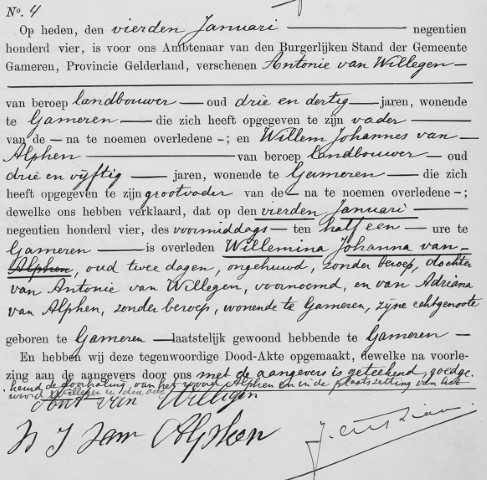 No. 4
Op heden, den vierden Januari negentien
honderd vier, is voor ons Ambtenaar van den Burgerlijken Stand der Gemeente
Gameren, Provincie Gelderland, verschenen Antonie van Willegen
van beroep landbouwer oud drie en dertig jaren, wonende
te Gameren die zich heeft opgegeven te zijn vader
van de na te noemen overledene; en Willem Johannes van
Alphen van beroep landbouwer oud
drie en vijftig jaren, wonende te Gameren die zich
heeft opgegeven te zijn grootvader van de na te noemen overledene;
dewelke ons hebben verklaard, dat op den vierden Januari
negentien honderd vier, des voormiddags ten half een ure te
Gameren is overleden Willemina Johanna van
Alphen, oud twee dagen, ongehuwd, zonder beroep, dochter
van Antonie van Willegen, voornoemd, en van Adriana
van Alphen, zonder beroep, wonende te Gameren, zijne echtgenoote
geboren te Gameren laatstelijk gewoond hebbende te Gameren
En hebben wij deze tegenwoordige Dood-Akte opgemaakt, dewelke na voorle-
zing aan de aangevers door ons met de aangevers is geteekend, goedge-
keurd de doorhaling van het woord Alphen en in de plaatsstelling van het
woord Willegen in den
van Willegen
W J van Alphen